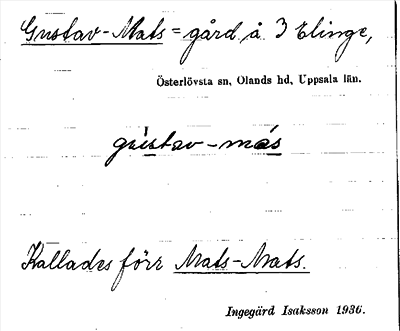 Gustav-Mats = gård å 3 Elinge,
Österlövsta sn, Olands hd, Uppsala län.
gústav-más
Kallades förr Mats-Mats.
Ingegärd Isaksson 1936.